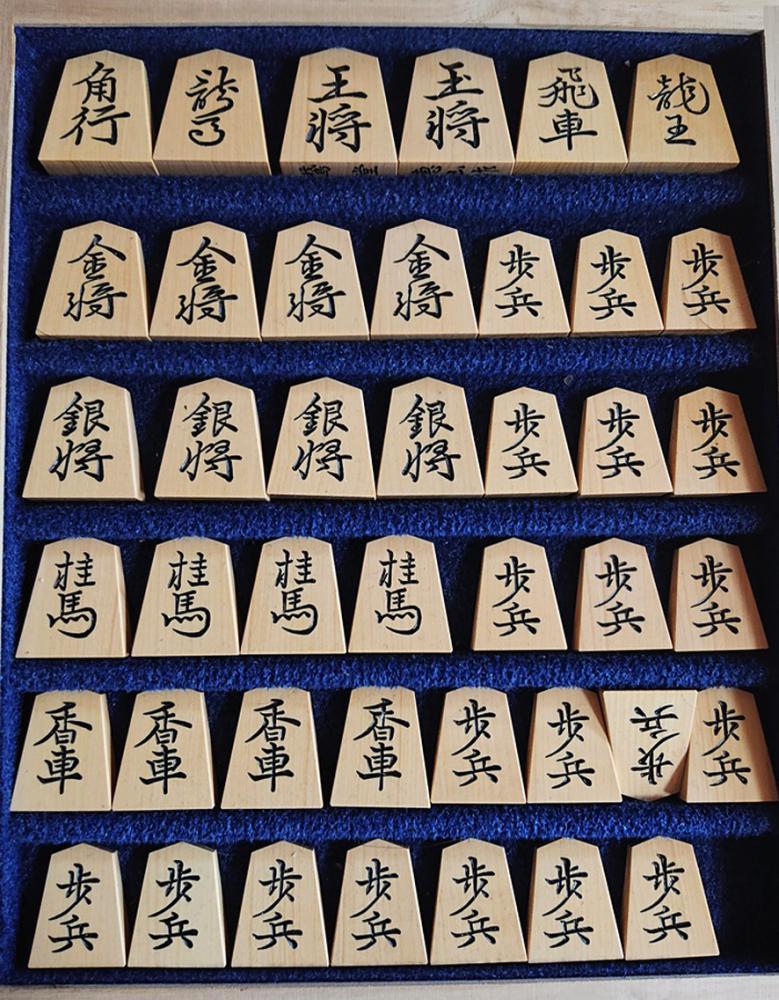 角行 龍馬 王将 玉将 飛車 龍王
金将 金将 金将 金将 歩兵 歩兵 歩兵
銀将 銀将 銀将 銀将 歩兵 歩兵 歩兵
桂馬 桂馬 桂馬 桂馬 歩兵 歩兵 歩兵
香車 香車 香車 香車 歩兵 歩兵 歩兵 歩兵
歩兵 歩兵 歩兵 歩兵 歩兵 歩兵 歩兵